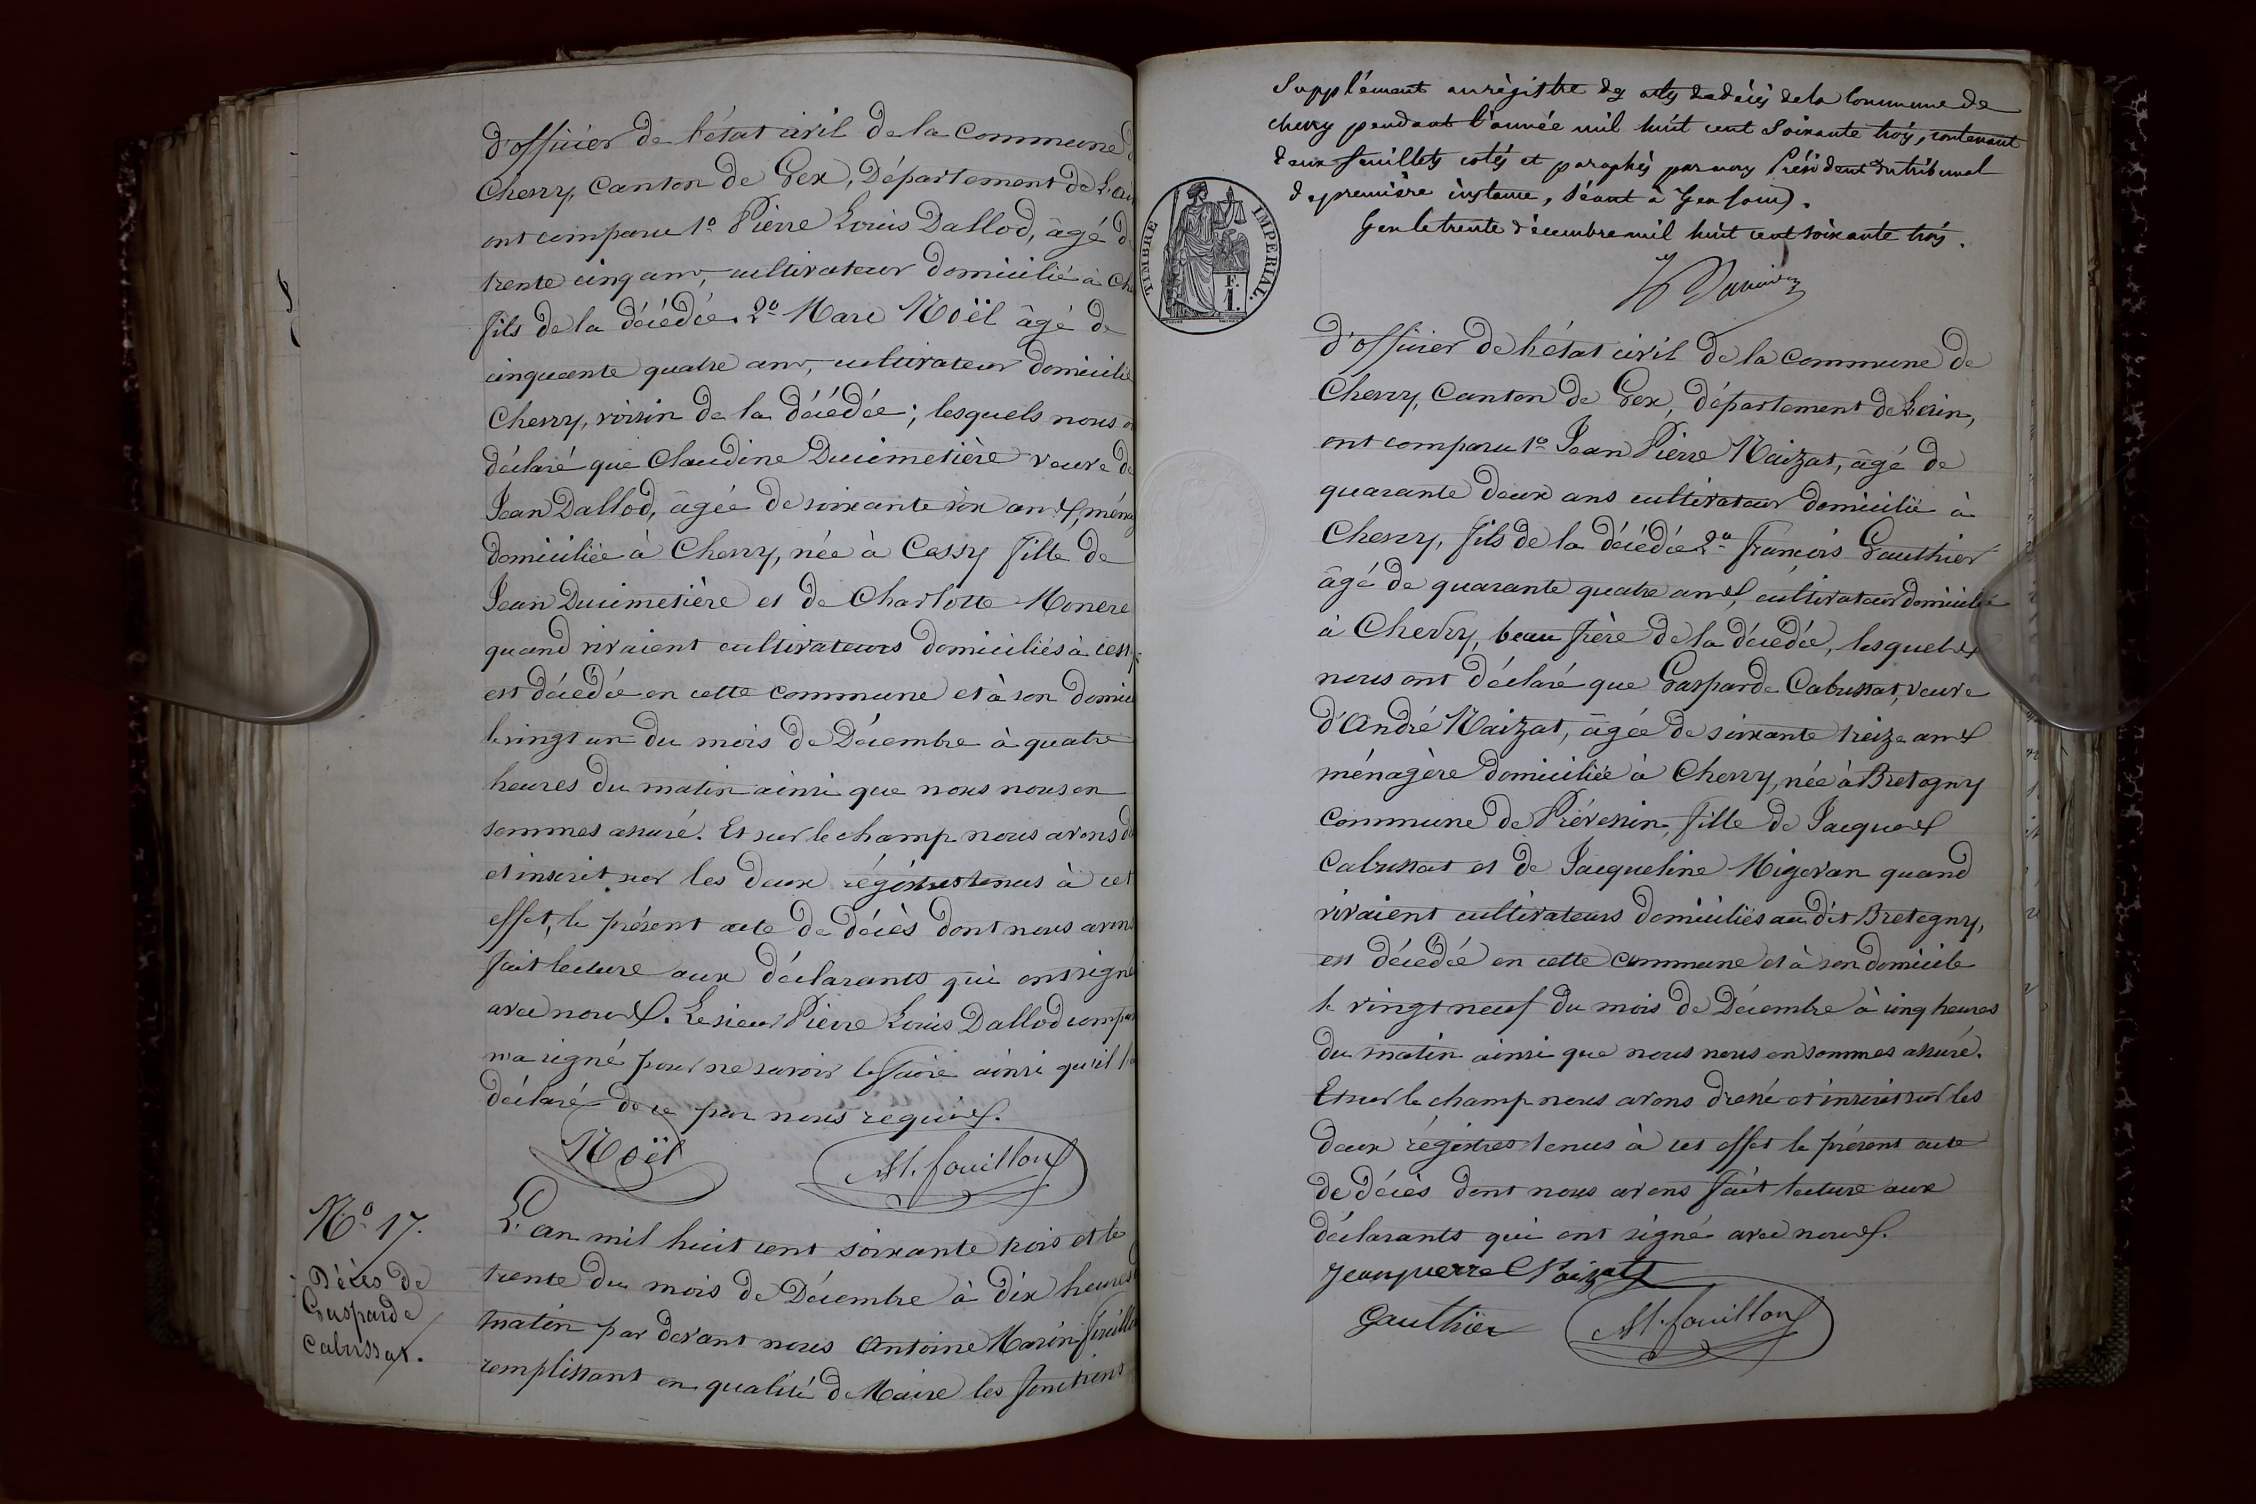 d'officier de l'état civil de la Commune d
Chevry, Canton de Gex, Département de l'Ain
ont comparu 1º Pierre Louis Dallod, âgé d
trente cinq ans, cultivateur domicilié à Che
fils de la décédée. 2º Marc Noël âgé de
cinquante quatre ans, cultivateur domicilié
Chevry, voisin de la décédée; lesquels nous o
déclaré que Claudine Ducimetière veuve de
Jean Dallod, âgée de soixante six ans, ménag
domiciliée à Chevry, née à Cessy fille de
Jean Ducimetière et de Charlotte Monere
quand vivaient cultivateurs domiciliés à Cessy
est décédée en cette commune et à son domici
le vingt un du mois de Décembre à quatre
heures du matin ainsi que nous nous en
sommes assuré. Et sur le champ nous avons d
et inscrit sur les deux régistres tenus à cet
effet, le présent acte de décès dont nous avons
fait lecture aux déclarants qui ont signé
avec nous. Le sieur Pierre Louis Dallod compar
n'a signé pour ne savoir le faire ainsi qu'il l'a
déclaré de ce par nous requis.
Noël
At. fouilloux
Nº 17.
Décès de
Gasparde
Cabussat.
L'an mil huit cent soixante trois et le
trente du mois de Décembre à dix heures d
matin par devant nous Antoine Marin fouillou
remplissant en qualité de Maire les fonctions
Supplément au règistre des actes de décès de la Commune de
chevry pendant l'année mil huit cent soixante trois, contenant
deux feuillets cotés et paraphés par nous Président du tribunal
de première instance, séant à Gex (ain).
Gex le trente décembre mil huit cent soixante trois.
TIMBRE IMPERIAL.
F.
1.
d'officier de l'état civil de la commune de
Chevry, Canton de Gex, département de l'Ain,
ont comparu 1º Jean Pierre Naizat, âgé de
quarante deux ans cultivateur domicilié à
Chevry, fils de la décédée 2º françois Gauthier
âgé de quarante quatre ans, cultivateur domicilié
à Chevry, beau frère de la décédée, lesquels
nous ont déclaré que Gasparde Cabussat, veuve
d'André Naizat, âgée de soixante treize ans
ménagère domiciliée à Chevry, née à Bretegny
Commune de Prévessin, fille de Jacques
Cabussat et de Jacqueline Migevan quand
vivaient cultivateurs domiciliés au dit Bretegny,
est décédée en cette commune et à son domicile
le vingt neuf du mois de Décembre à cinq heures
du matin ainsi que nous nous en sommes assuré.
Et sur le champ nous avons dressé et inscrit sur les
deux régistres tenus à cet effet le présent acte
de décès dont nous avons fait lecture aux
déclarants qui ont signé avec nous.
Jeanpierre Naizat
Gauthier
At. fouilloux